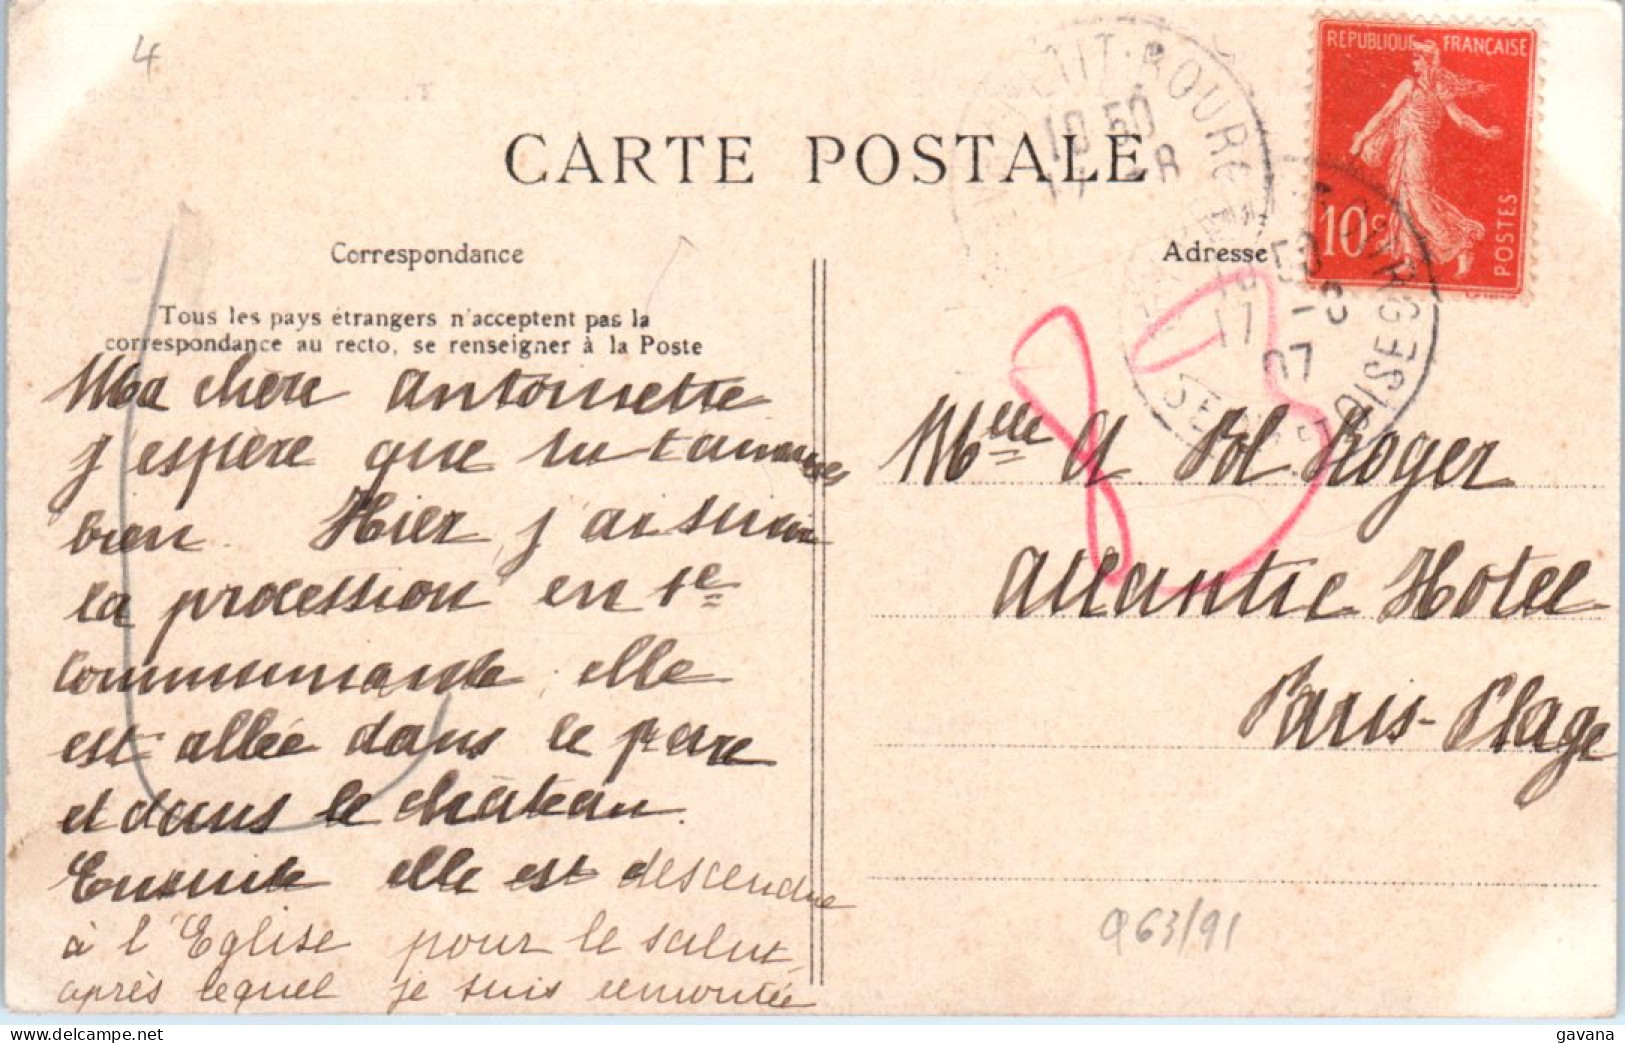 4
CARTE POSTALE
RÉPUBLIQUE FRANÇAISE
10c
POSTES
10 50
17 -8
17 -8
07
SEINE-ET-OISE
Correspondance
Adresse
Tous les pays étrangers n'acceptent pas la
correspondance au recto, se renseigner à la Poste
Ma chère Antoinette
j'espère que tu t'amuses
bien. Hier j'ai suivi
la procession en 1e
communiante, elle
est allée dans le parc
et dans le château.
Ensuite elle est descendue
à l'Eglise pour le salut,
après lequel je suis remontée
Mlle A Pol Roger
Atlantic Hotel
Paris-Plage
Q63/91
gavana